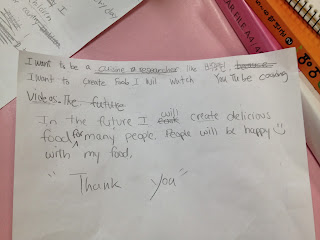 I want to be a cuisine a researcher like
I want to create food I will watch YouTube cooking
Videos. The future
In the future I will create delicious
food for many people. People will be happy
with my food.
"Thank you"